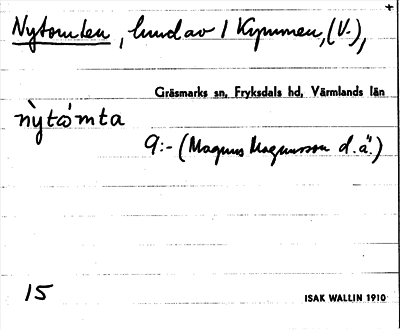 Nytomten, hmd av 1 Kymmen, (V.),
Gräsmarks sn, Fryksdals hd, Värmlands län
nỳtὼmta
9:- (Magnus Magnusson d.ä.)
15
ISAK WALLIN 1910